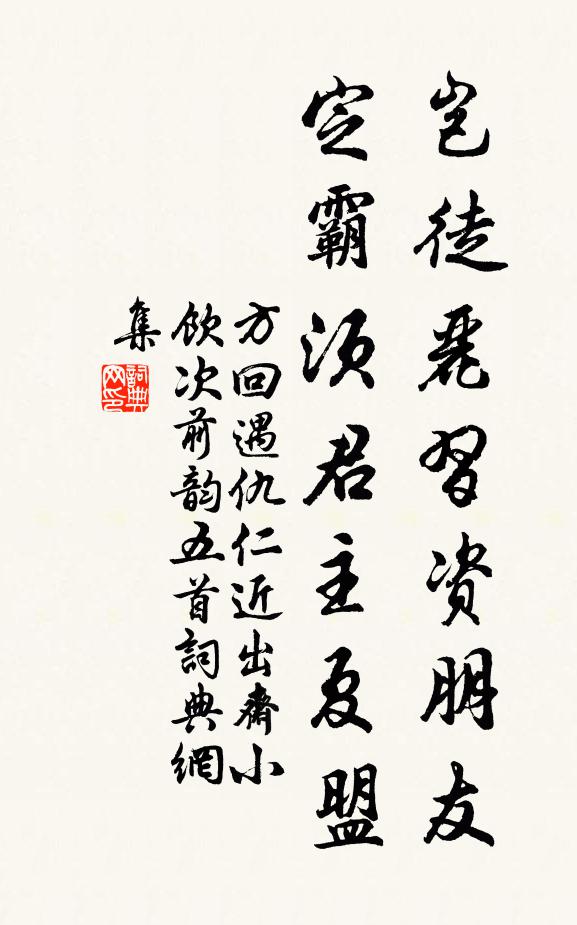 豈徒麗習資朋友
定霸須君主夏盟
方回遇仇仁近出齋小
飲次前韵五首詞典網
集
詞典
网印